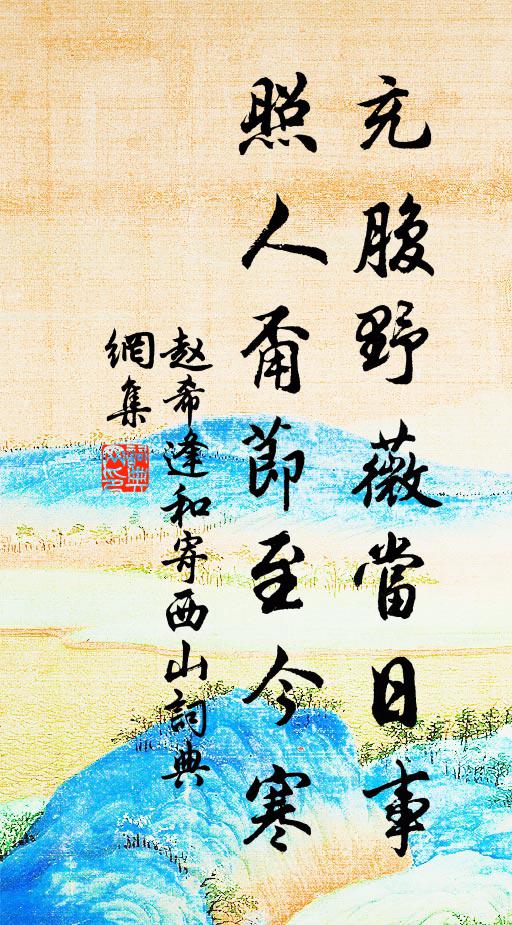 充腹野薇當日事
照人爾節至今寒
赵希逢和寄西山詞典
網集